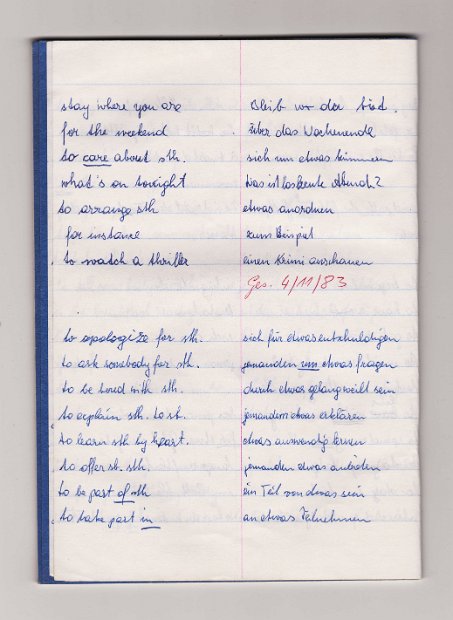 stay where you are    Bleib wo du bist.
for the weekend    über das Wochenende
to care about sth.    sich um etwas kümmern
what's on tonight    Was ist los heute Abend?
to arrange sth    etwas anordnen
for instance    zum Beispiel
to watch a thriller    einen Krimi anschauen
Ges. 4/11/83
to apologize for sth.    sich für etwas entschuldigen
to ask somebody for sth.    jemanden um etwas fragen
to be bored with sth.    durch etwas gelangweilt sein
to explain sth. to sb.    jemandem etwas erklären
to learn sth by heart.    etwas auswendig lernen
to offer sb. sth.    jemanden etwas anbieten
to be part of sth    ein Teil von etwas sein
to take part in    an etwas teilnehmen